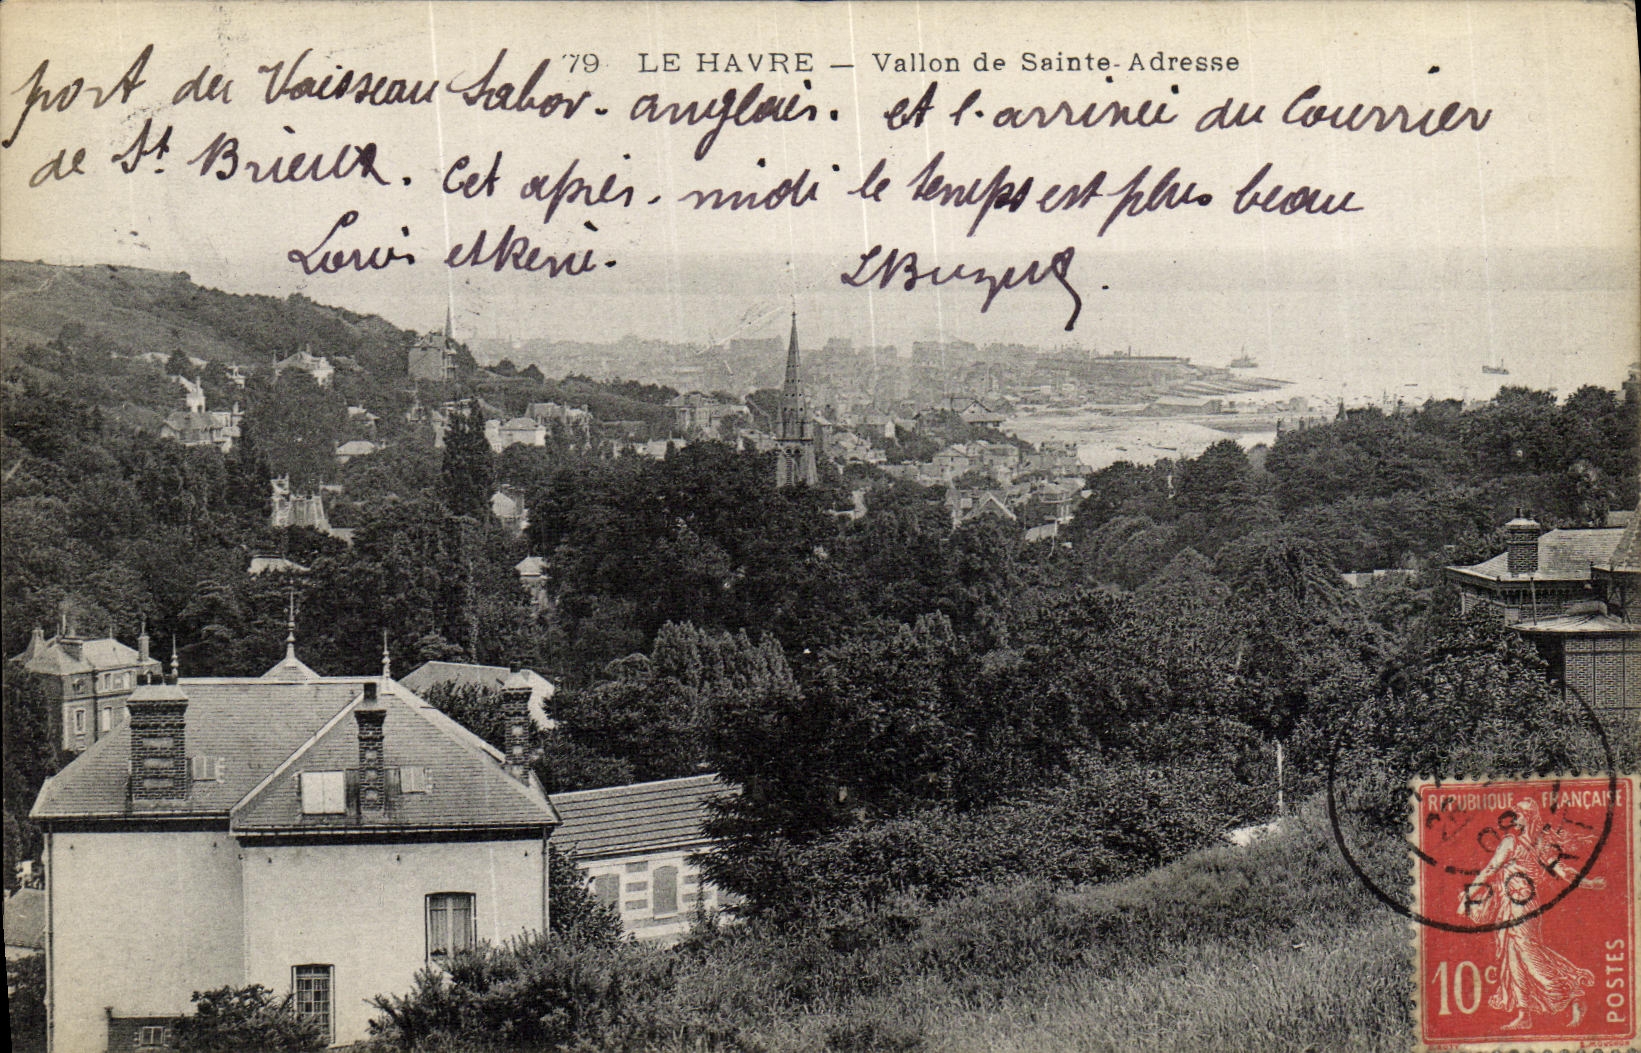 79 LE HAVRE — Vallon de Sainte-Adresse
port du Vaisseau Labor. anglais. et l'arrivée du Courrier
de St. Brieux. Cet après-midi le temps est plus beau
Louis et René.
REPUBLIQUE FRANÇAISE
10c
POSTES